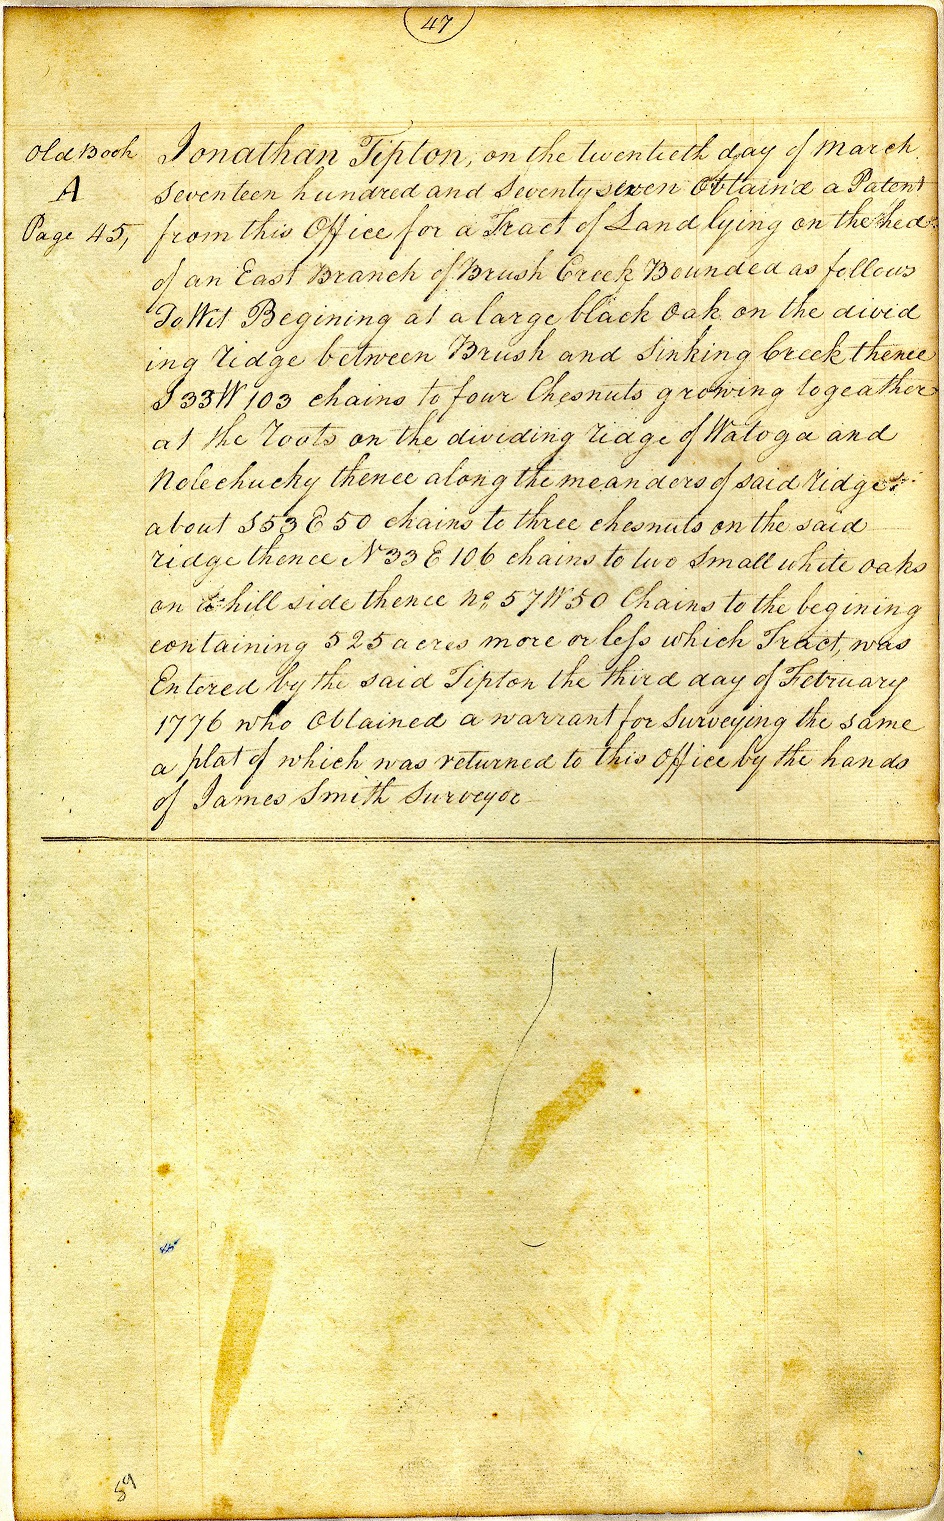 47
Old Book
A
Page 45,
Jonathan Tipton, on the twentieth day of March
Seventeen hundred and Seventy seven Obtain'd a Patent
from this Office for a Tract of Land lying on the hed
of an East Branch of Brush Creek Bounded as follows
To Wit Begining at a large black Oak on the divid
ing ridge between Brush and Sinking Creek thence
S 33 W 103 chains to four Chesnuts growing togeather
at the roots on the dividing ridge of Watoga and
Nolechucky thence along the meanders of said ridge
about S 53 E 50 chains to three chesnuts on the said
ridge thence N 33 E 106 chains to two small white oaks
on a hill side thence No 57 W 50 Chains to the begining
containing 525 acres more or less which Tract, was
Entered by the said Tipton the third day of February
1776 who Obtained a warrant for Surveying the same
a plat of which was returned to this Office by the hands
of James Smith Surveyor
59